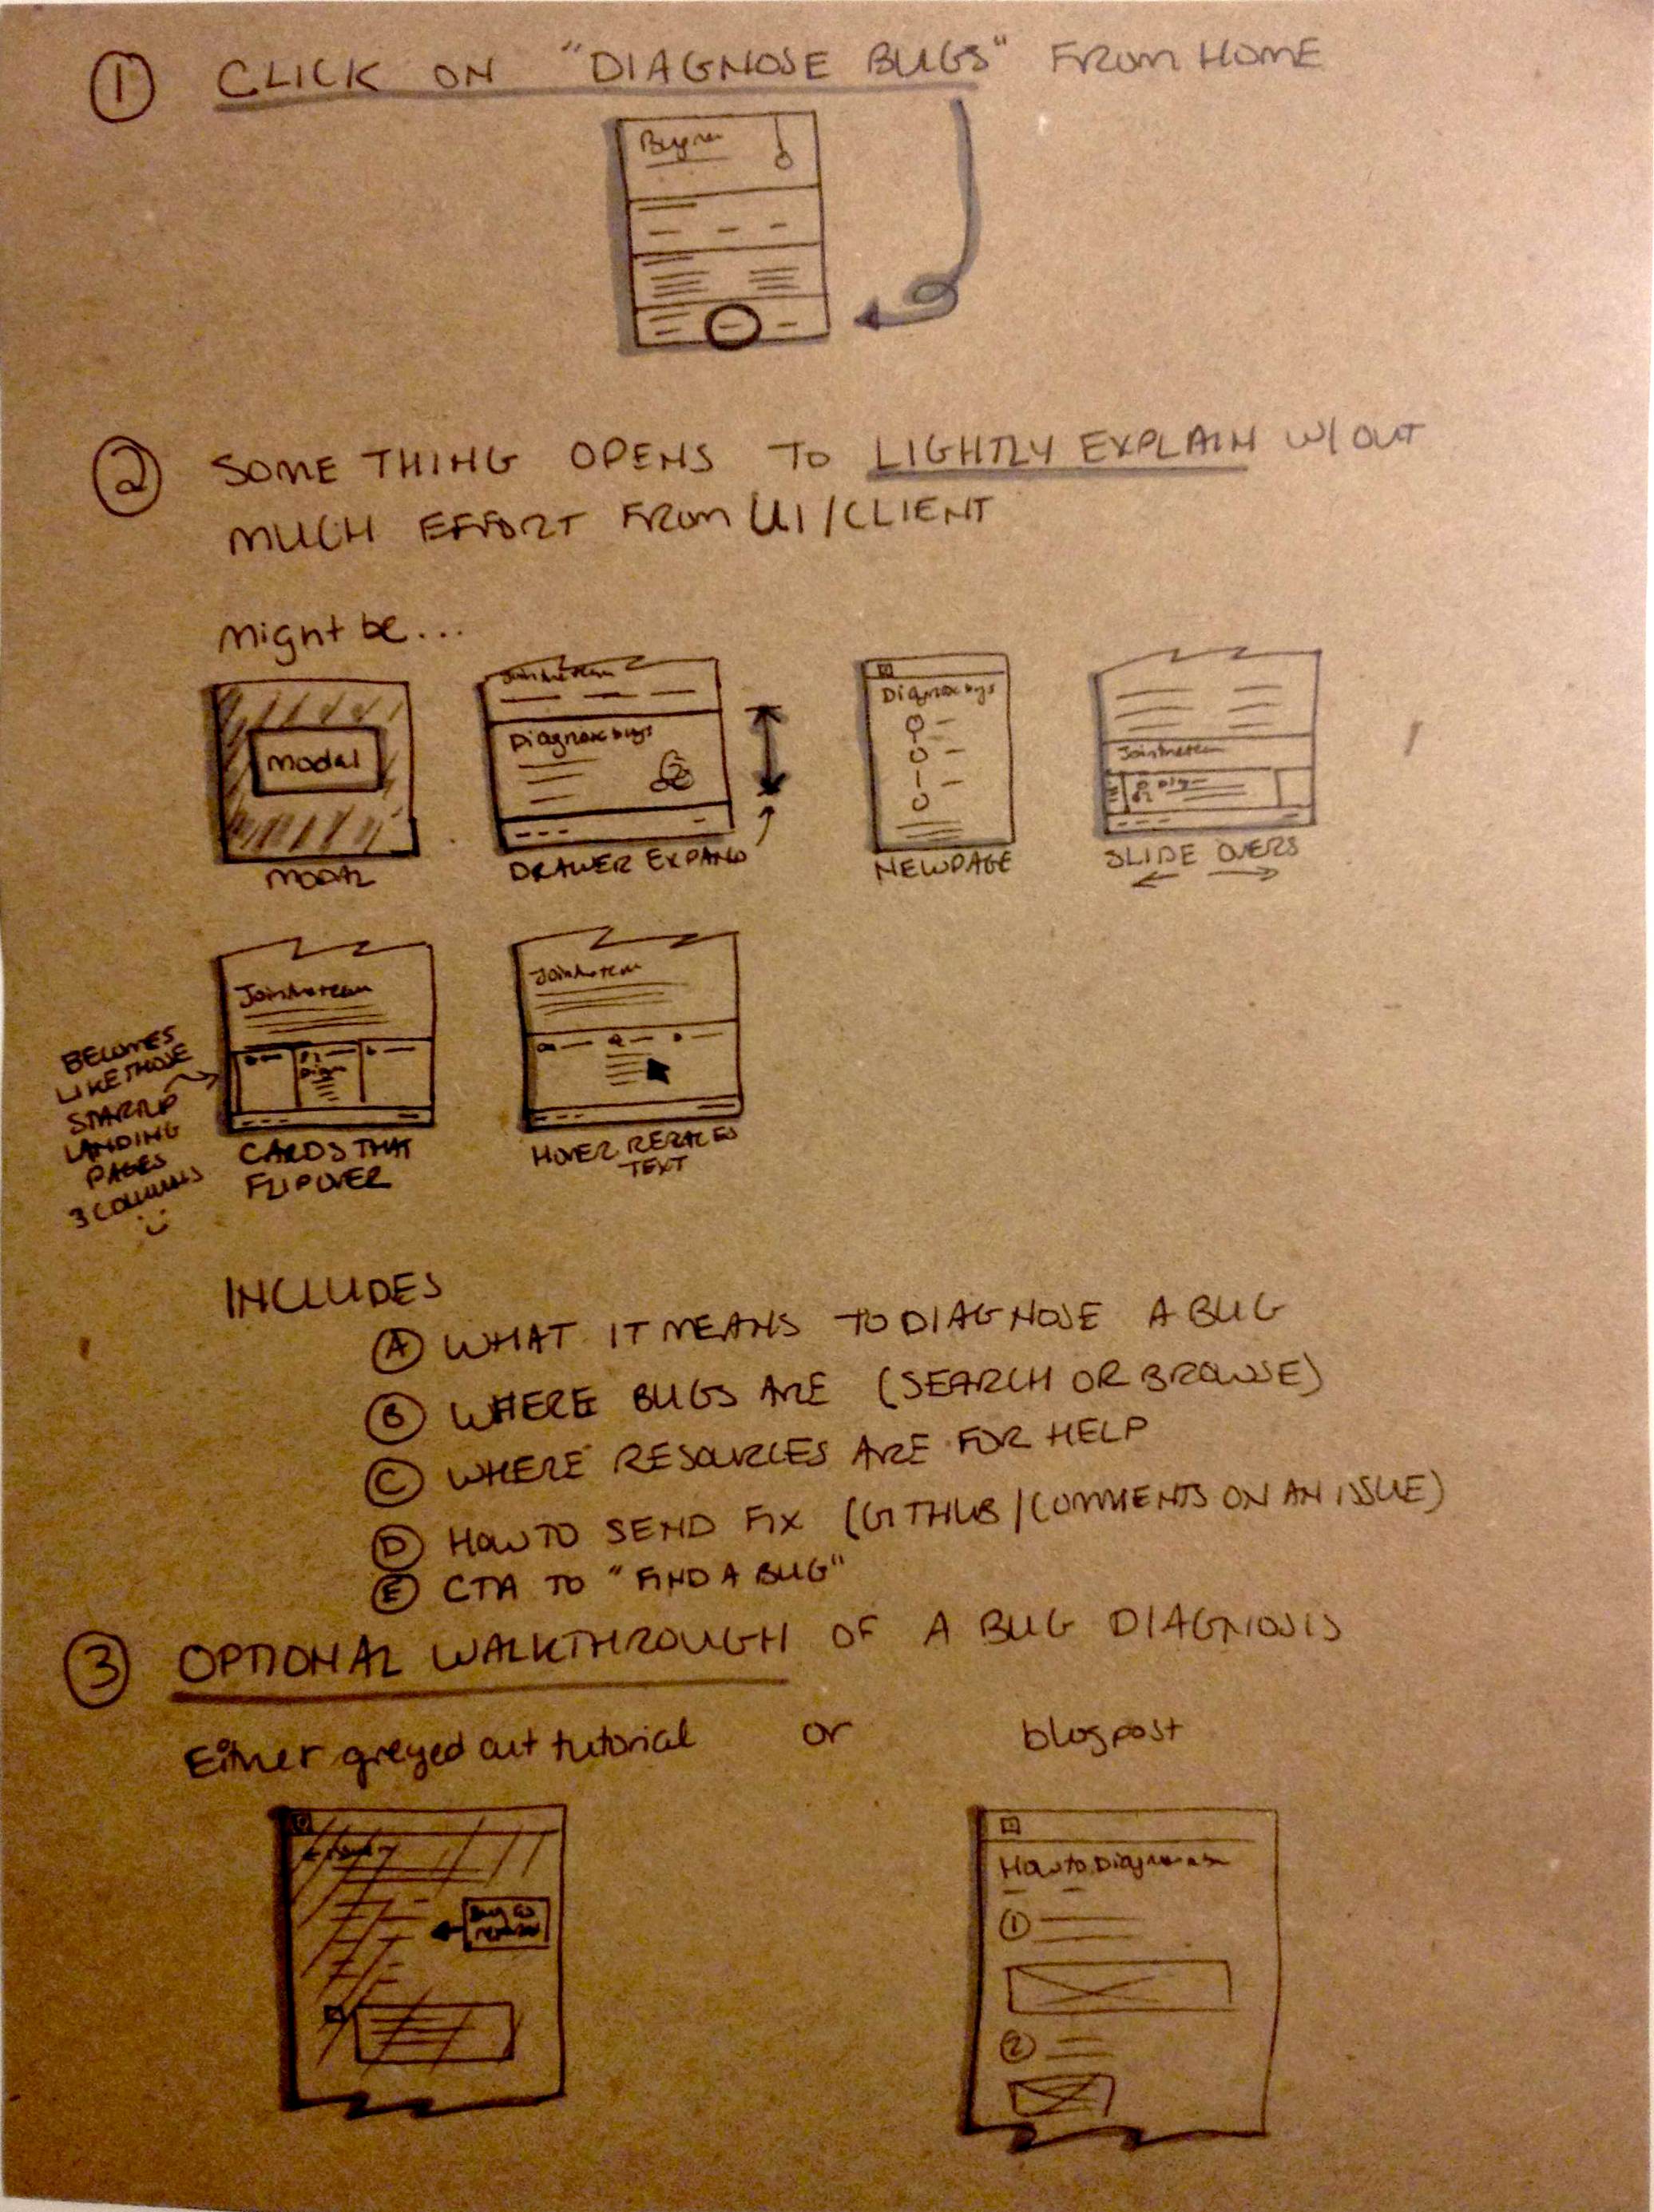 ① CLICK ON "DIAGNOSE BUGS" FROM HOME
② SOMETHING OPENS TO LIGHTLY EXPLAIN W/OUT
MUCH EFFORT FROM UI/CLIENT
might be...
Modal
MODAL
Join the team
Diagnose bugs
DRAWER EXPAND
Diagnose bugs
NEW PAGE
Join the team
SLIDE OVERS
Join the team
BECOMES
LIKE THOSE
STARTUP
LANDING
PAGES
3 COLUMNS
CARDS THAT
FLIP OVER
Join the team
HOVER
TEXT
INCLUDES
Ⓐ WHAT IT MEANS TO DIAGNOSE A BUG
Ⓑ WHERE BUGS ARE (SEARCH OR BROWSE)
Ⓒ WHERE RESOURCES ARE FOR HELP
Ⓓ HOW TO SEND FIX (GITHUB/COMMENTS ON AN ISSUE)
Ⓔ CTA TO "FIND A BUG"
③ OPTIONAL WALKTHROUGH OF A BUG DIAGNOSIS
Either greyed out tutorial or blog post
How to Diagnose
①
②